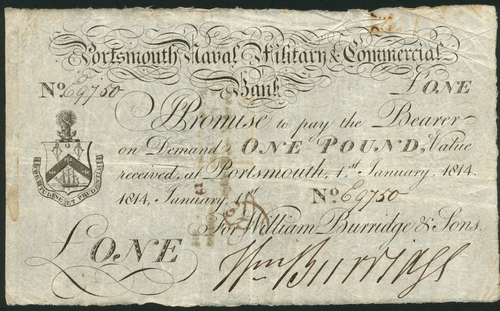 Portsmouth Naval Military & Commercial
Bank
No. E9750
£ ONE
I Promise to pay the Bearer
on Demand ONE POUND, Value
received, at Portsmouth, 1st January, 1814.
1814, January, 1st No. E9750
For William Burridge & Sons.
£ ONE
Wm Burridge